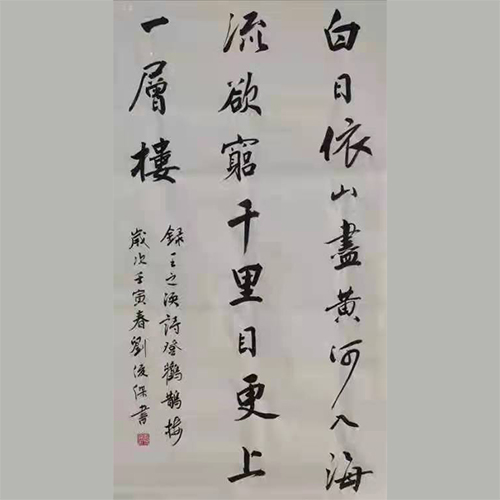 白日依山盡黄河入海
流欲窮千里目更上
一層樓
録王之渙詩登鸛鵲楼
歲次壬寅春劉俊保書